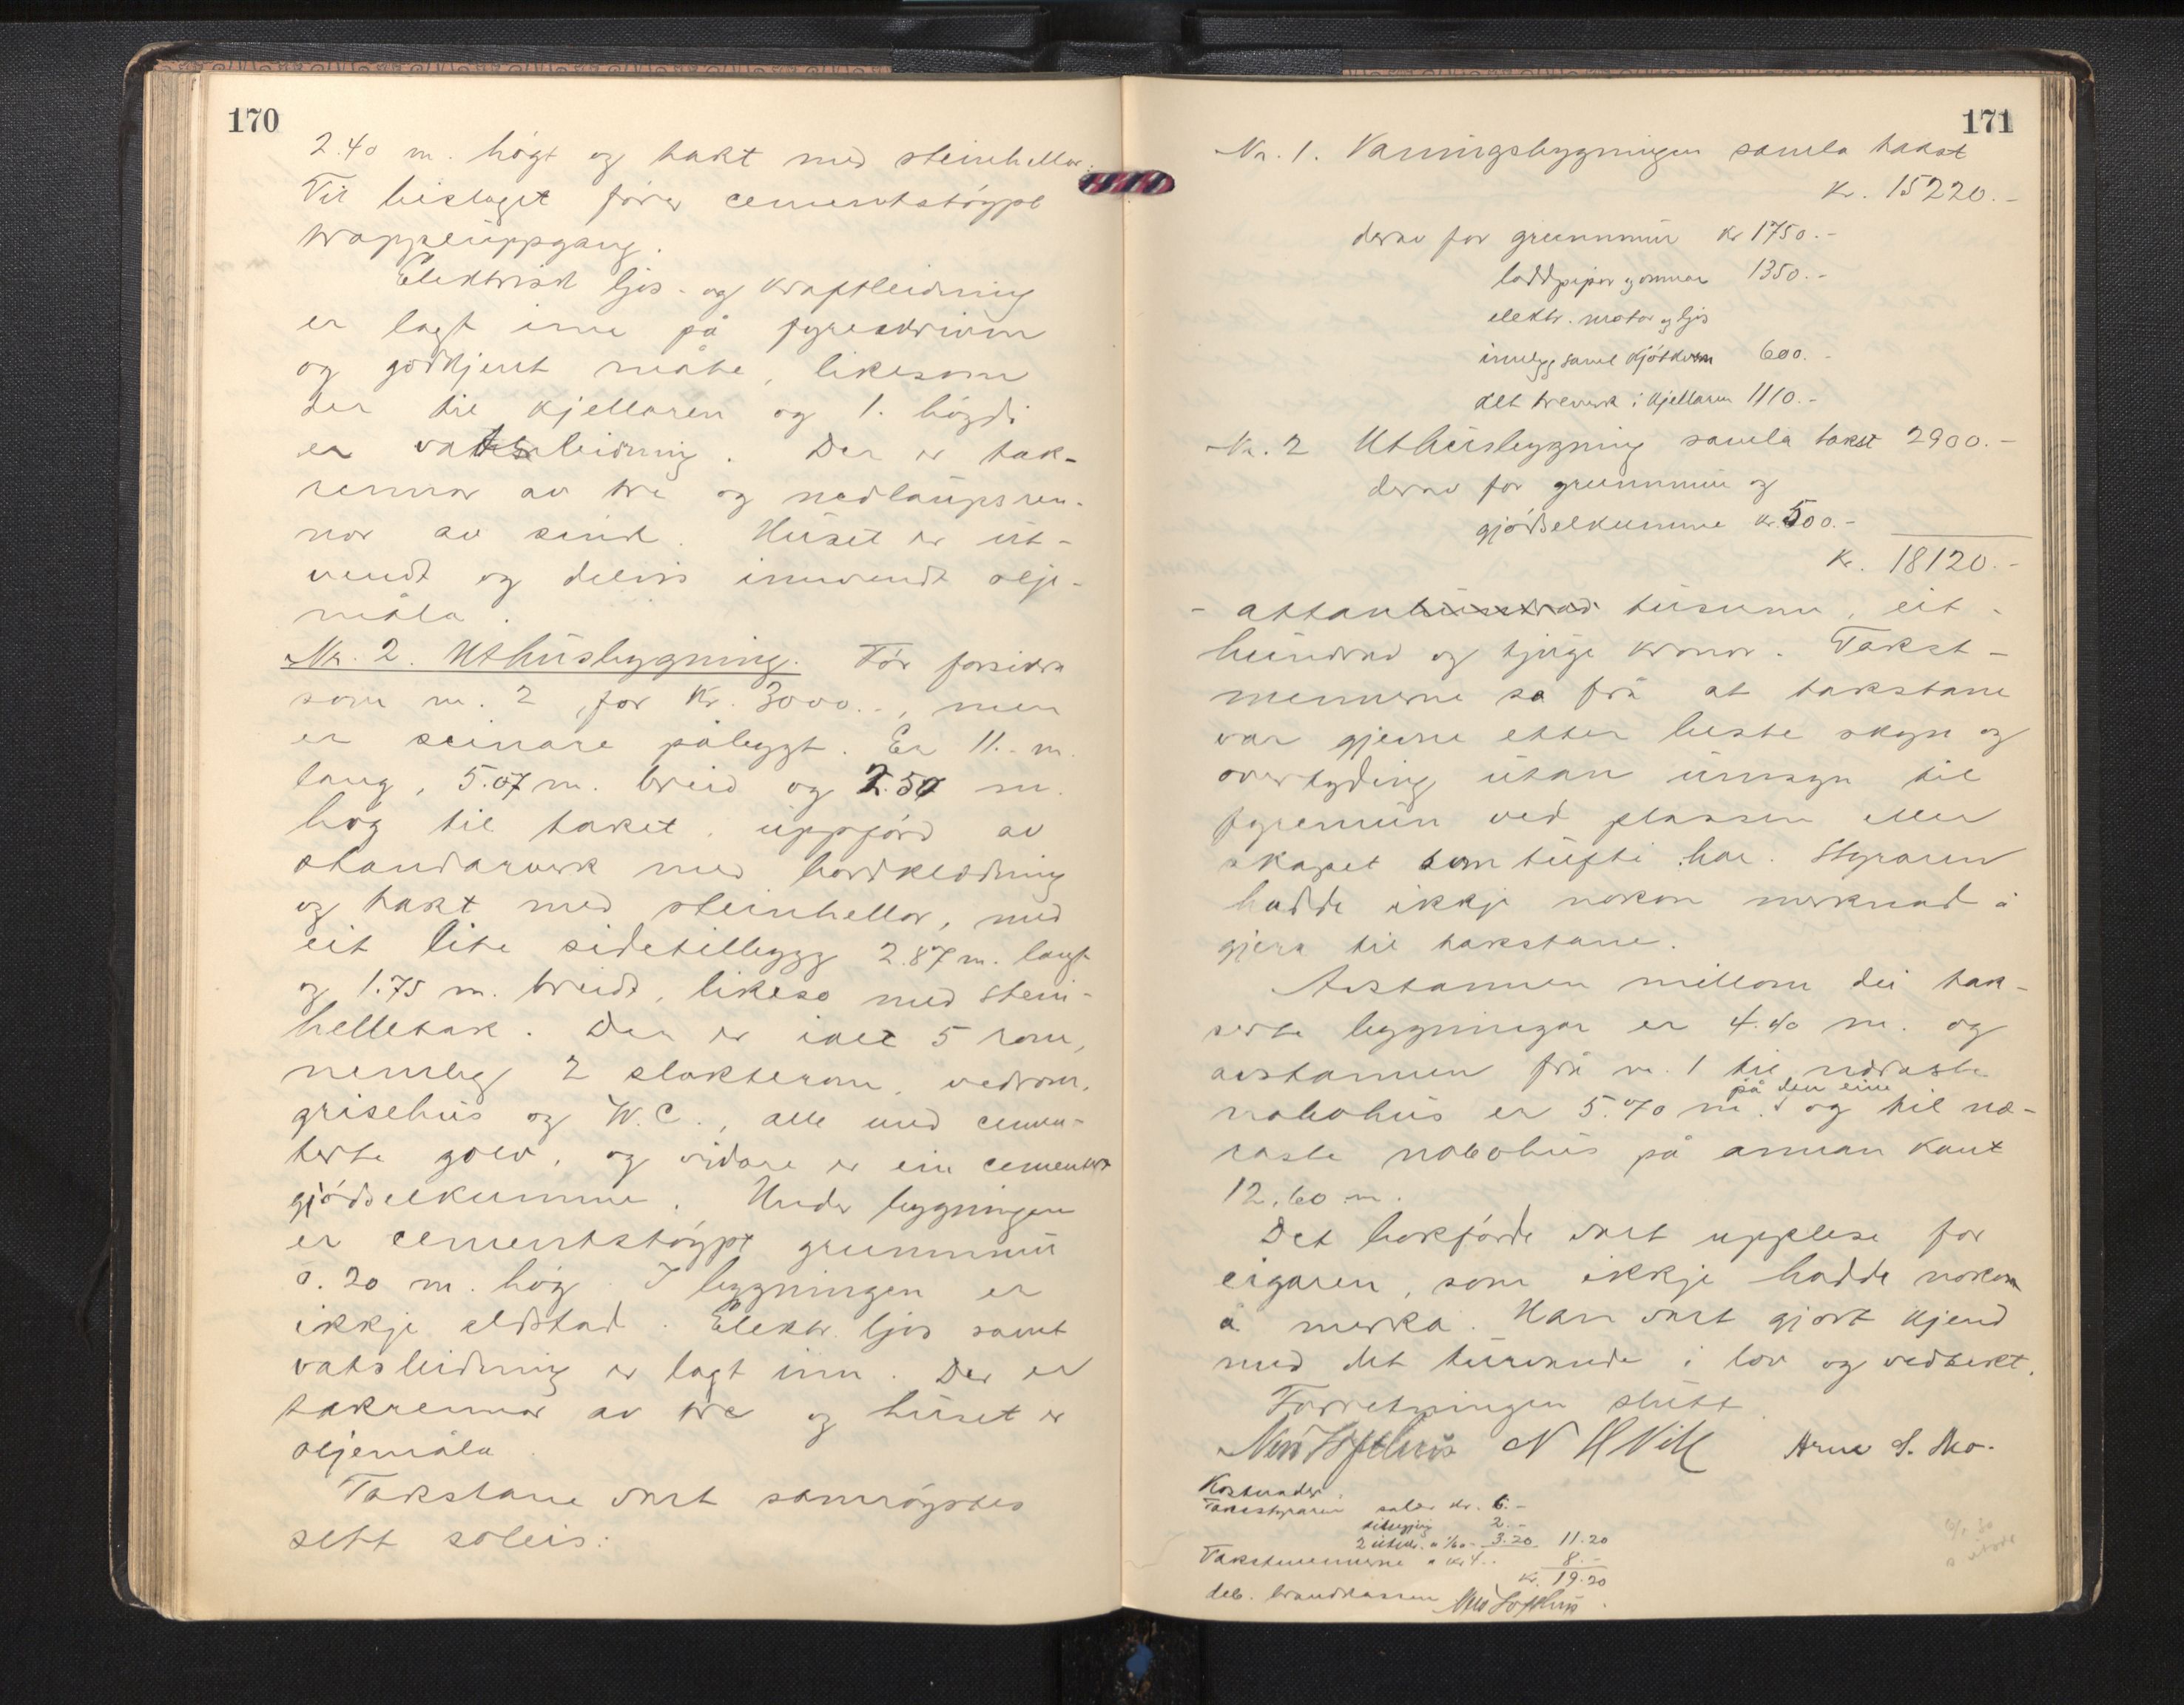 170
2.40 m. høgt og takt med steinhellor.
Til bislaget fører cementstøypt
trappeuppgang.
Elektrisk ljos- og kraftleidning
er lagt inn på fyreskriven
og godkjent måte, likesom
der til kjellaren og 1. høgdi
er vatsleidning. Der er tak-
rennor av tre og nedlaupsren-
nor av sink. Huset er ut-
vendt og delvis innvendt olje-
måla.
Nr. 2. Uthusbygning. Før forsikra
som nr. 2, for kr. 3000.-, men
er seinare påbygt. Er 11.- m.
lang, 5.07 m. breid og 2.50 m.
høg til taket, uppførd av
standarverk med bordklædning
og takt med steinhellor, med
eit lite sidetillegg 2.87 m. langt
og 1.75 m. breidt, likeso med stein-
helletak. Der er ialt 5 rom,
nemleg 2 slakterom, vedrom,
grisehus og W.C., alle med cemen-
terte golv, og vidare er ein cementert
gjødselkumme. Under bygningen
er cementstøypt grunnmur
0.20 m. høg. I bygningen er
ikkje eldstad. Elektr. ljos samt
vatsleidning er lagt inn. Der er
takrennor av tre og huset er
oljemåla.
Takstane vart samrøystes
sett soleis:
171
Nr. 1. Vaningsbygningen samla takst
Kr. 15220.-
derav for grunnmur kr 1750.-
loddpipor og omnar 1350.-
elektr. motor og ljos
innlegg samt kjøtkvern 600.-
alt treverk i kjellaren 1110.-
Nr. 2 Uthusbygning samla takst 2900.-
derav for grunnmur og
gjødselkumme kr. 500.-
Kr. 18120.-
- attanhundrad tusunn, eit-
hundrad og tjuge kronor. Takst-
mennerne sa frå at takstane
var gjevne etter beste skyn og
overtyding utan umsyn til
fyremun ved plassen eller
skapet som tufti har. Styraren
hadde ikkje nokon merknad å
gjera til takstane.
Avstannen millom dei tak-
serte bygningar er 4.40 m. og
avstannen frå nr. 1 til næraste
på den eine
nabohus er 5.70 m. og til næ-
raste nabohus på annan kant
12.60 m.
Det bokførde vart upplese for
eigaren, som ikkje hadde nokon
å merka. Han vart gjort kjend
med det turvande i lov og vedtekt.
Forretningen slutt.
N H Vik Arne S. Mo.
Kostnader.
Takststyraren salær kr. 6.-
2.-
2 à 1/60 - 3.20 11.20
Takstmennerne à kr 4.- 8.-
Kr. 19.20
deb. brandkassen